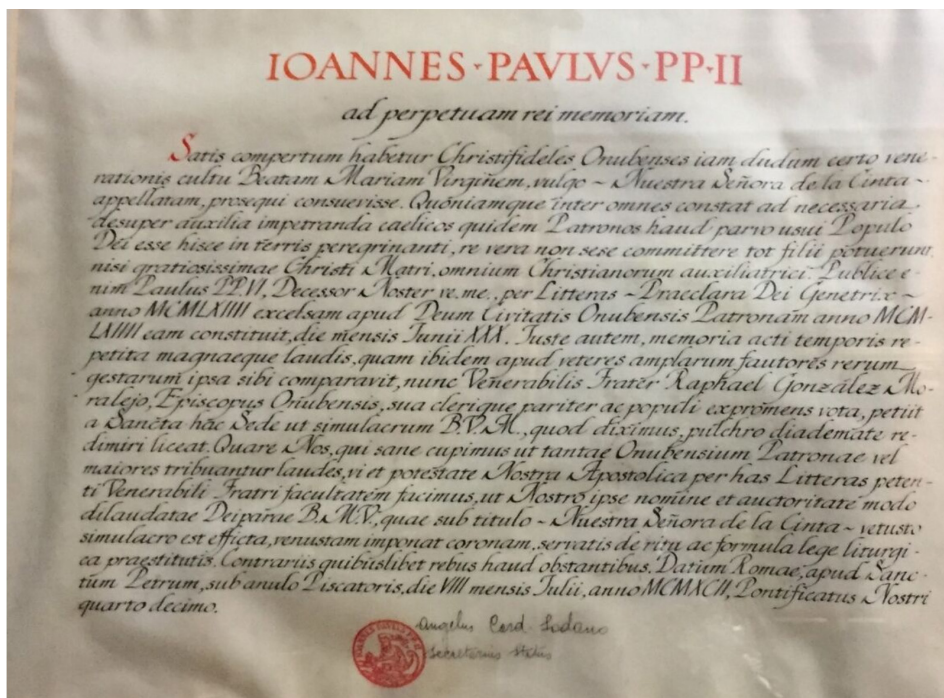 IOANNES · PAVLVS · PP · II
ad perpetuam rei memoriam.
Satis compertum habetur Christifideles Onubenses iam dudum certo vene-
rationis cultu Beatam Mariam Virginem, vulgo ~ Nuestra Señora de la Cinta ~
appellatam, prosequi consuevisse. Quoniamque inter omnes constat ad necessaria
desuper auxilia impetranda caelicos quidem Patronos haud parvo usui Populo
Dei esse hisce in terris peregrinanti, re vera non sese committere tot filii potuerunt,
nisi gratiosissimae Christi Matri, omnium Christianorum auxiliatrici. Publice e-
nim Paulus PP.VI, Decessor Noster ve.me., per Litteras ~ Praeclara Dei Genetrix ~
anno MCMLXIIII excelsam apud Deum Civitatis Onubensis Patronam anno MCM-
LXIIII eam constituit, die mensis Junii XXX. Juste autem, memoria acti temporis re-
petita magnaeque laudis, quam ibidem apud veteres amplarum fautores rerum
gestarum ipsa sibi comparavit, nunc Venerabilis Frater Raphael González Mo-
ralejo, Episcopus Onubensis, sua clerique pariter ac populi expromens vota, petiit
a Sancta hac Sede ut simulacrum B.V.M., quod diximus, pulchro diademate re-
dimiri liceat. Quare Nos, qui sane cupimus ut tantae Onubensium Patronae vel
maiores tribuantur laudes, vi et potestate Nostra Apostolica per has Litteras peten-
ti Venerabili Fratri facultatem facimus, ut Nostro ipse nomine et auctoritate modo
dilaudatae Deiparae B.M.V., quae sub titulo ~ Nuestra Señora de la Cinta ~ vetusto
simulacro est efficta, venustam imponat coronam, servatis de ritu ac formula lege liturgi-
ca praestitutis. Contrariis quibuslibet rebus haud obstantibus. Datum Romae, apud Sanc-
tum Petrum, sub anulo Piscatoris, die VIII mensis Julii, anno MCMXCII, Pontificatus Nostri
quarto decimo.
Angelus Card. Sodano
Secretarius Status